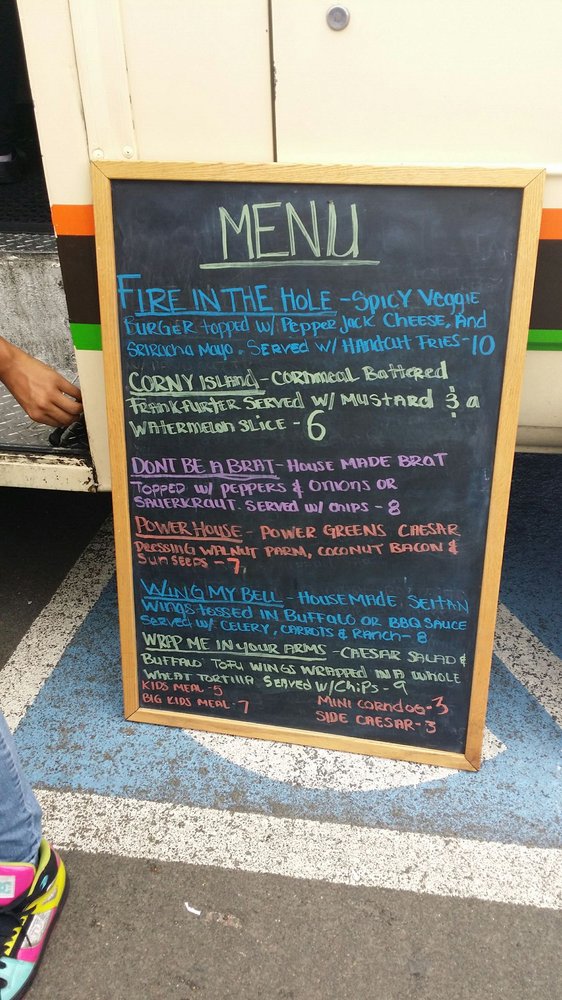 MENU
FIRE IN THE HOLE - SPICY VEGGIE
BURGER TOPPED W/ PEPPER JACK CHEESE, AND
SRIRACHA MAYO. SERVED W/ HANDCUT FRIES - 10
CORNY ISLAND - CORNMEAL BATTERED
FRANKFURTER SERVED W/ MUSTARD & A
WATERMELON SLICE - 6
DONT BE A BRAT - HOUSE MADE BRAT
TOPPED W/ PEPPERS & ONIONS OR
SAUERKRAUT. SERVED W/ CHIPS - 8
POWER HOUSE - POWER GREENS CAESAR
DRESSING WALNUT PARM, COCONUT BACON &
SUN SEEDS - 7
WING MY BELL - HOUSEMADE SEITAN
WINGS TOSSED IN BUFFALO OR BBQ SAUCE
SERVED W/ CELERY, CARROTS & RANCH - 8
WRAP ME IN YOUR ARMS - CAESAR SALAD &
BUFFALO TOFU WINGS WRAPPED IN A WHOLE
WHEAT TORTILLA SERVED W/ CHIPS - 9
KIDS MEAL - 5
BIG KIDS MEAL - 7
MINI CORNDOG - 3
SIDE CAESAR - 3